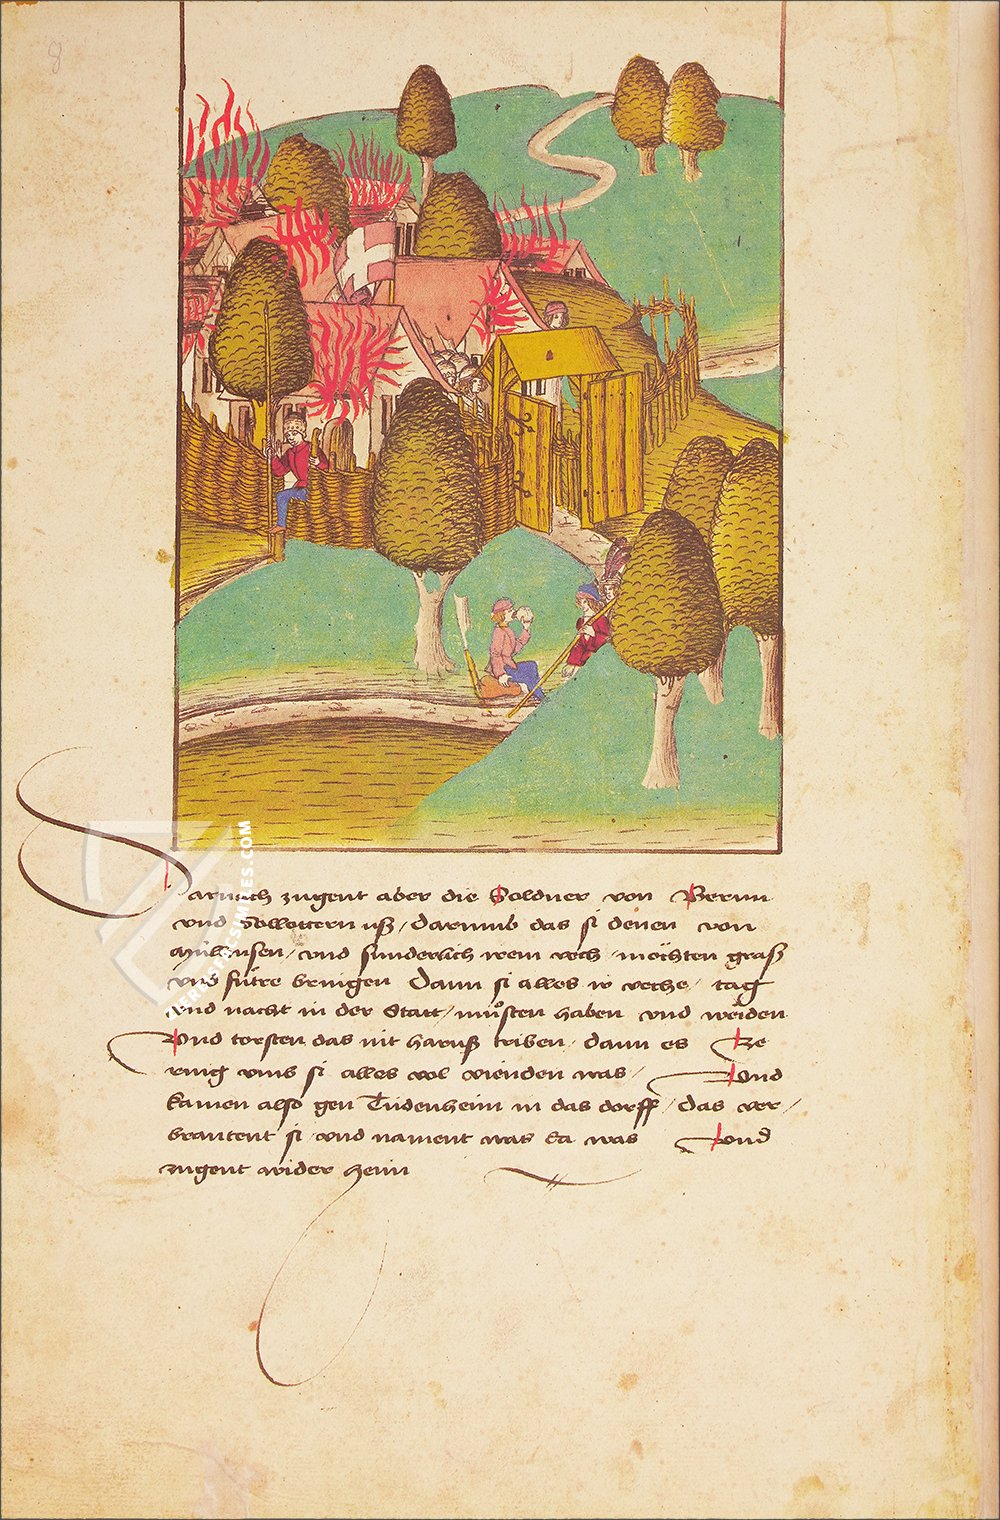 8
Darnach zugent aber die Soldner von Bernn
und Sollottern uß / darumb das si denen von
Mülhusen / und sunderlich irem vech / möchten graß
und fütre bringen Dann si alles ir veche / tag
und nacht in der Statt / muͦsten haben und weiden
Und torsten das nit haruß triben / dann es Ze
ring umb si alles vol vienden was / Und
kamen also gen Tüdenheim in das dorff / das ver /
brantent si / und nament was da was Und
zugent wider heim
FACSIMILES.COM